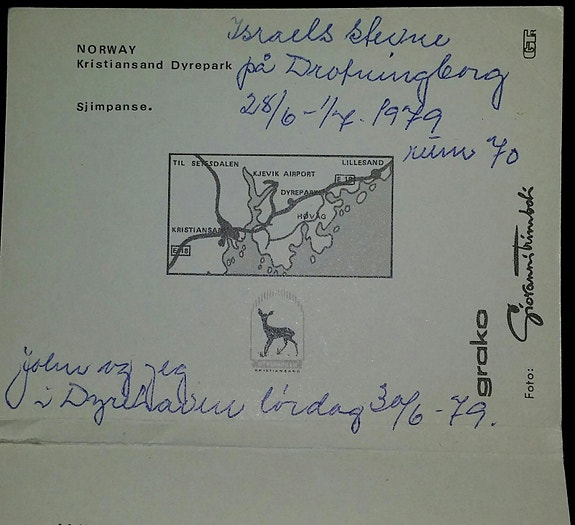 NORWAY
Kristiansand Dyrepark
Sjimpanse.
Israels stevne
på Drotningborg
28/6-1/7. 1979
rum 70
TIL SETESDALEN
KJEVIK AIRPORT
LILLESAND
E 18
DYREPARK
HØVÅG
KRISTIANSAND
E 18
KRISTIANSAND
John og jeg
i Dyrehaven lördag 30/6-79.
grako
Foto: